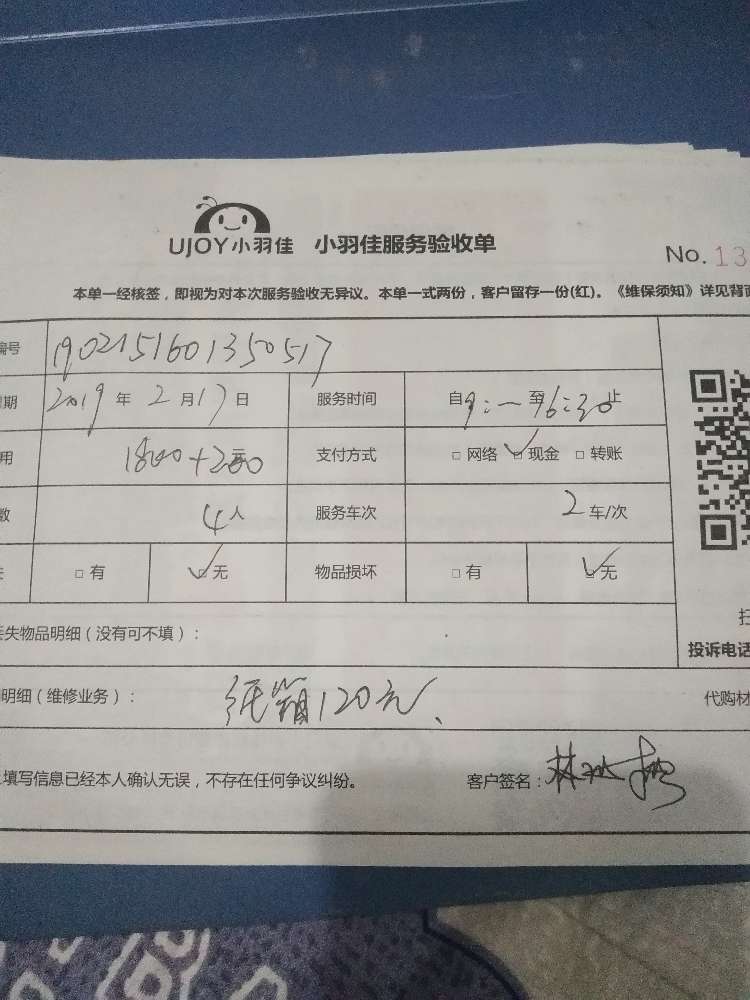 UJOY小羽佳 小羽佳服务验收单
No. 13
本单一经核签，即视为对本次服务验收无异议。本单一式两份，客户留存一份(红)。《维保须知》详见背面
编号 190215160135051７
期 2019 年 2 月 17 日 服务时间 自9:一至16:30止
用 1800+200 支付方式 □ 网络 ☑ 现金 □ 转账
数 4人 服务车次 2车/次
□ 有 ☑无 物品损坏 □ 有 ☑无
失物品明细（没有可不填）：
投诉电话
明细（维修业务）： 纸箱120元、 代购材
填写信息已经本人确认无误，不存在任何争议纠纷。 客户签名：林